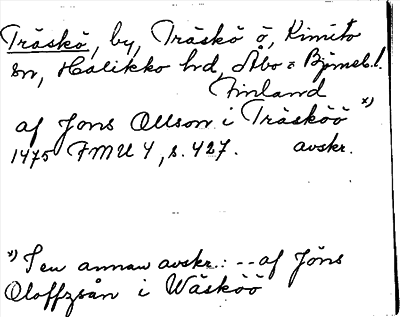 Träskö, by, Träskö ö, Kimito
sn, Halikko hd, Åbo = Björneb. l.
Finland
af Jöns Ollson i Träsköö x)
1475 FMU 4, s. 427. avskr.
x) I en annan avskr.: -- af Jöns
Oloffzsån i Wäsköö